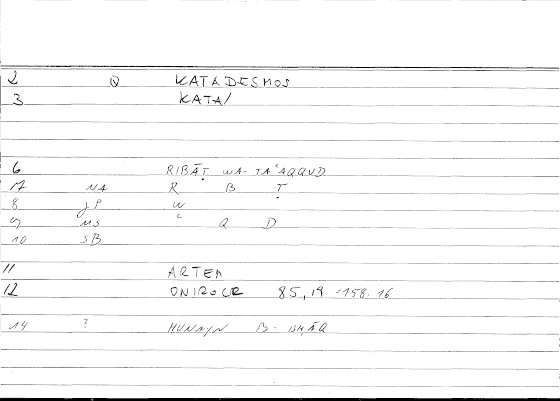 2 Q KATADESMOS
3 KATA/
6 RIBĀṬ WA-TAʿAQQUD
17 NA R B Ṭ
8 JP W
9 MS ʿ Q D
10 SB
11 ARTEM
12 ONIROCR 85,19 =158.16
14 ? HUNAYN B. ISḤĀQ